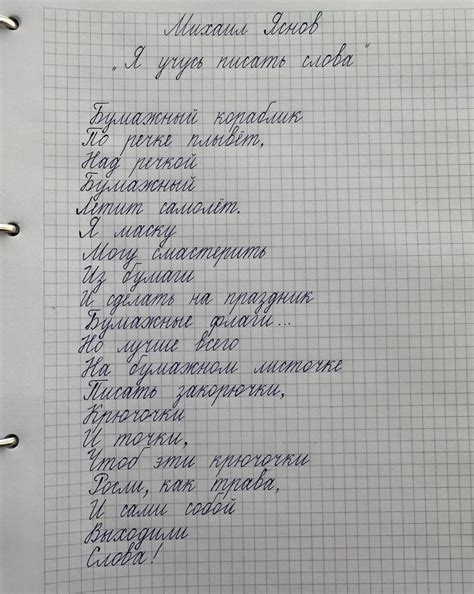 Михаил Яснов
„Я учусь писать слова"
Бумажный кораблик
По речке плывёт,
Над речкой
Бумажный
Летит самолёт.
Я маску
Могу смастерить
Из бумаги
И сделать на праздник
Бумажные флаги...
Но лучше всего
На бумажном листочке
Писать закорючки,
Крючочки
И точки,
Чтоб эти крючочки
Росли, как трава,
И сами собой
Выходили
Слова!